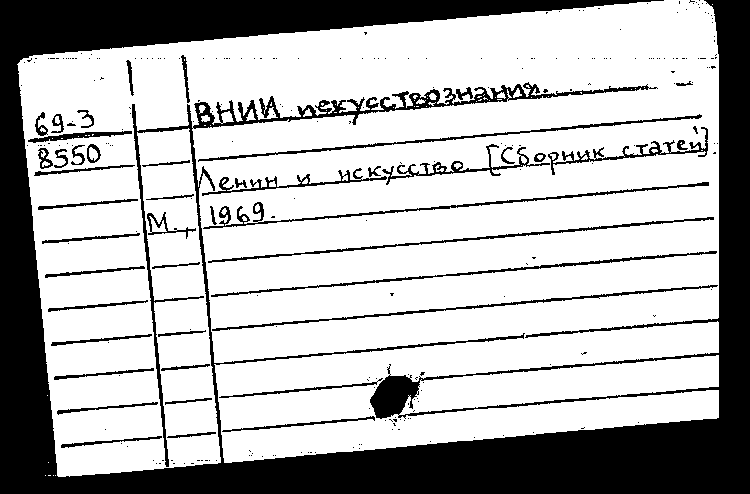 69-3
8550
ВНИИ искусствознания.
Ленин и искусство [Сборник статей].
М., 1969.